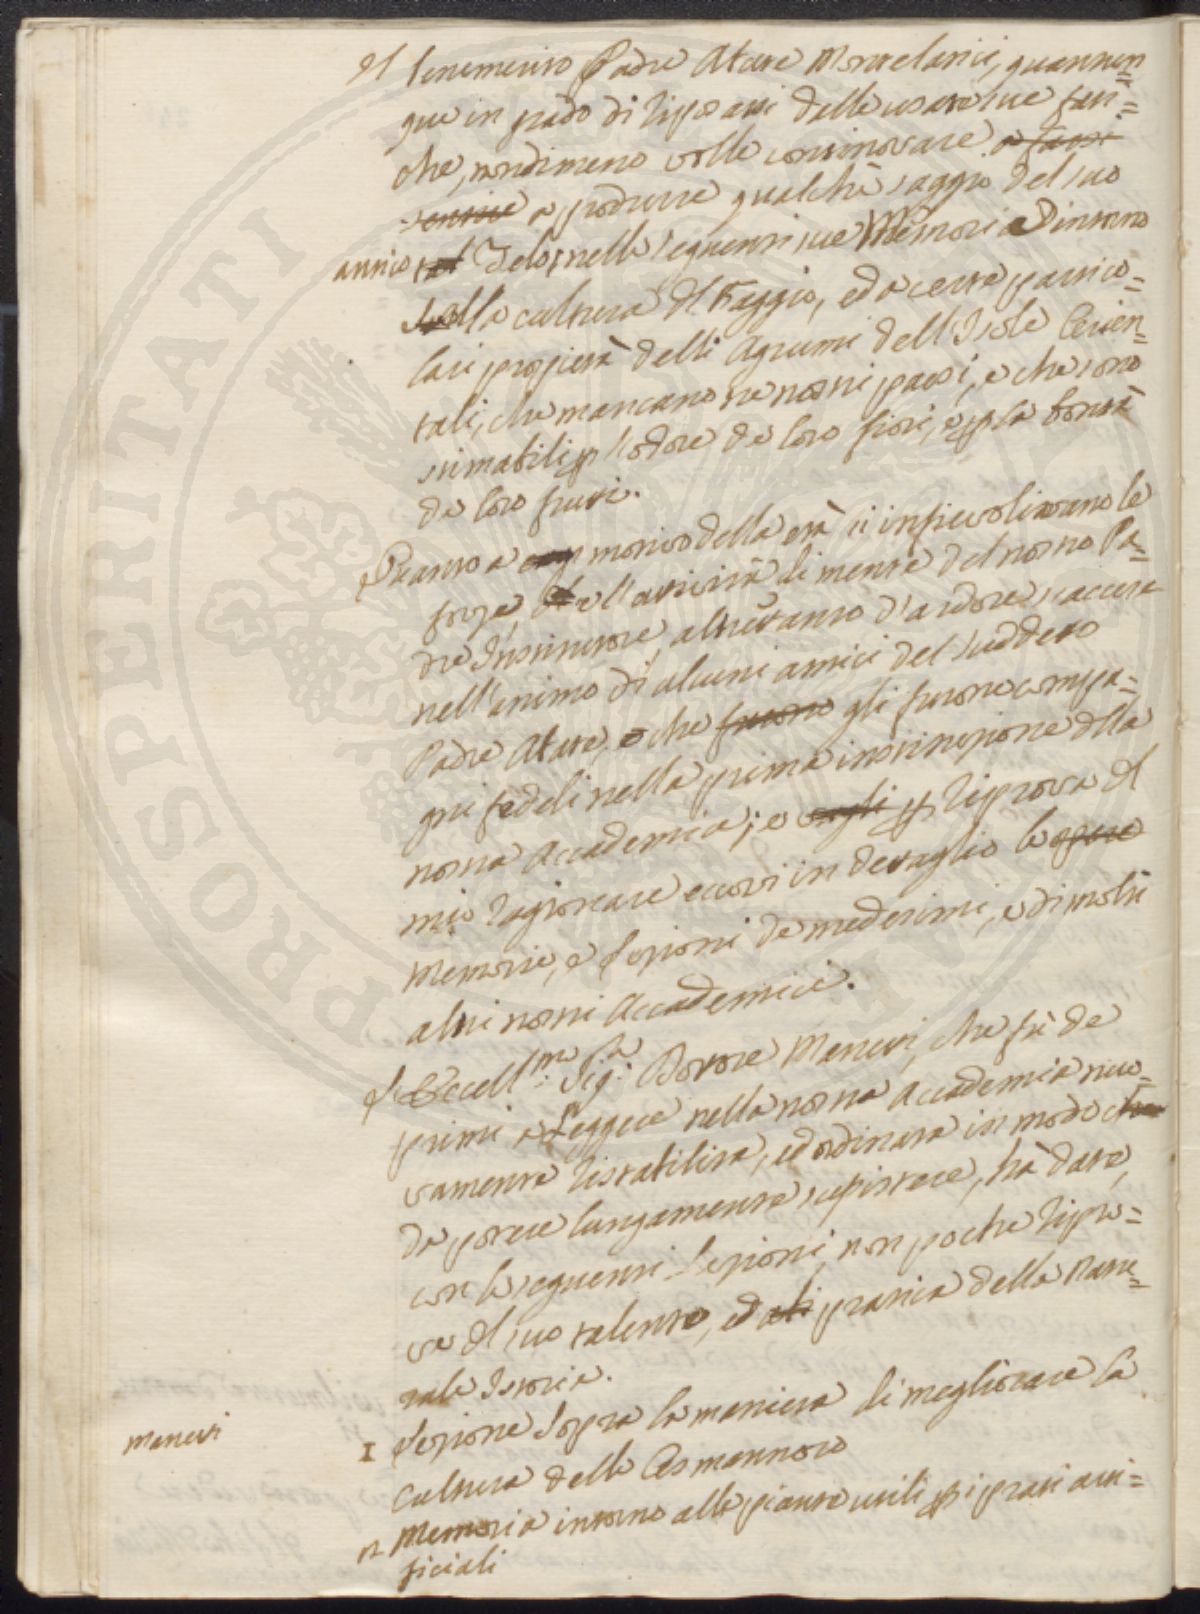 Il Reverendissimo Padre Abate Montelatici, quantun=
que in grado di riposarsi dalle usate sue fati=
che, nondimeno volle continovare
a produrre qualche saggio del suo
antico zelo, nelle seguenti sue Memorie D'intorno
alla cultura del Faggio, ed a certe partico=
lari proprietà delli Agrumi dell'Isole Orien=
tali, che mancano ne nostri paesi, e che sono
stimabili per l'odore de loro fiori, e per la bontà
de loro frutti.
Quanto a motivo della età si infievolivano le
forze, e l'attività di mente del nostro Pa=
dre Institutore, altrettanto d'ardore s'accese
nell'animo di alcuni amici del suddetto
Padre Abate, che furono gli furono compa=
gni fedeli nella prima instituzione della
nostra Accademia; e per riprova del
mio ragionare eccovi in dettaglio le opere
Memorie, e Lezioni de medesimi, e di molti
altri nostri Accademici.
L'Eccell.mo Sig.r Dottore Manetti, che fù de
primi a Leggere nella nostra Accademia nuo=
vamente ristabilita, ed ordinata in modo
da potere lungamente susistere, hà date,
con le seguenti Lezioni, non poche ripro=
ve del suo talento, ed pratica della Natu=
rale Istoria.
Manetti
1 Lezione Sopra la maniera di megliorare la
Cultura delle Osmannoro
2 Memoria intorno alle piante utili per i prati arti=
ficiali